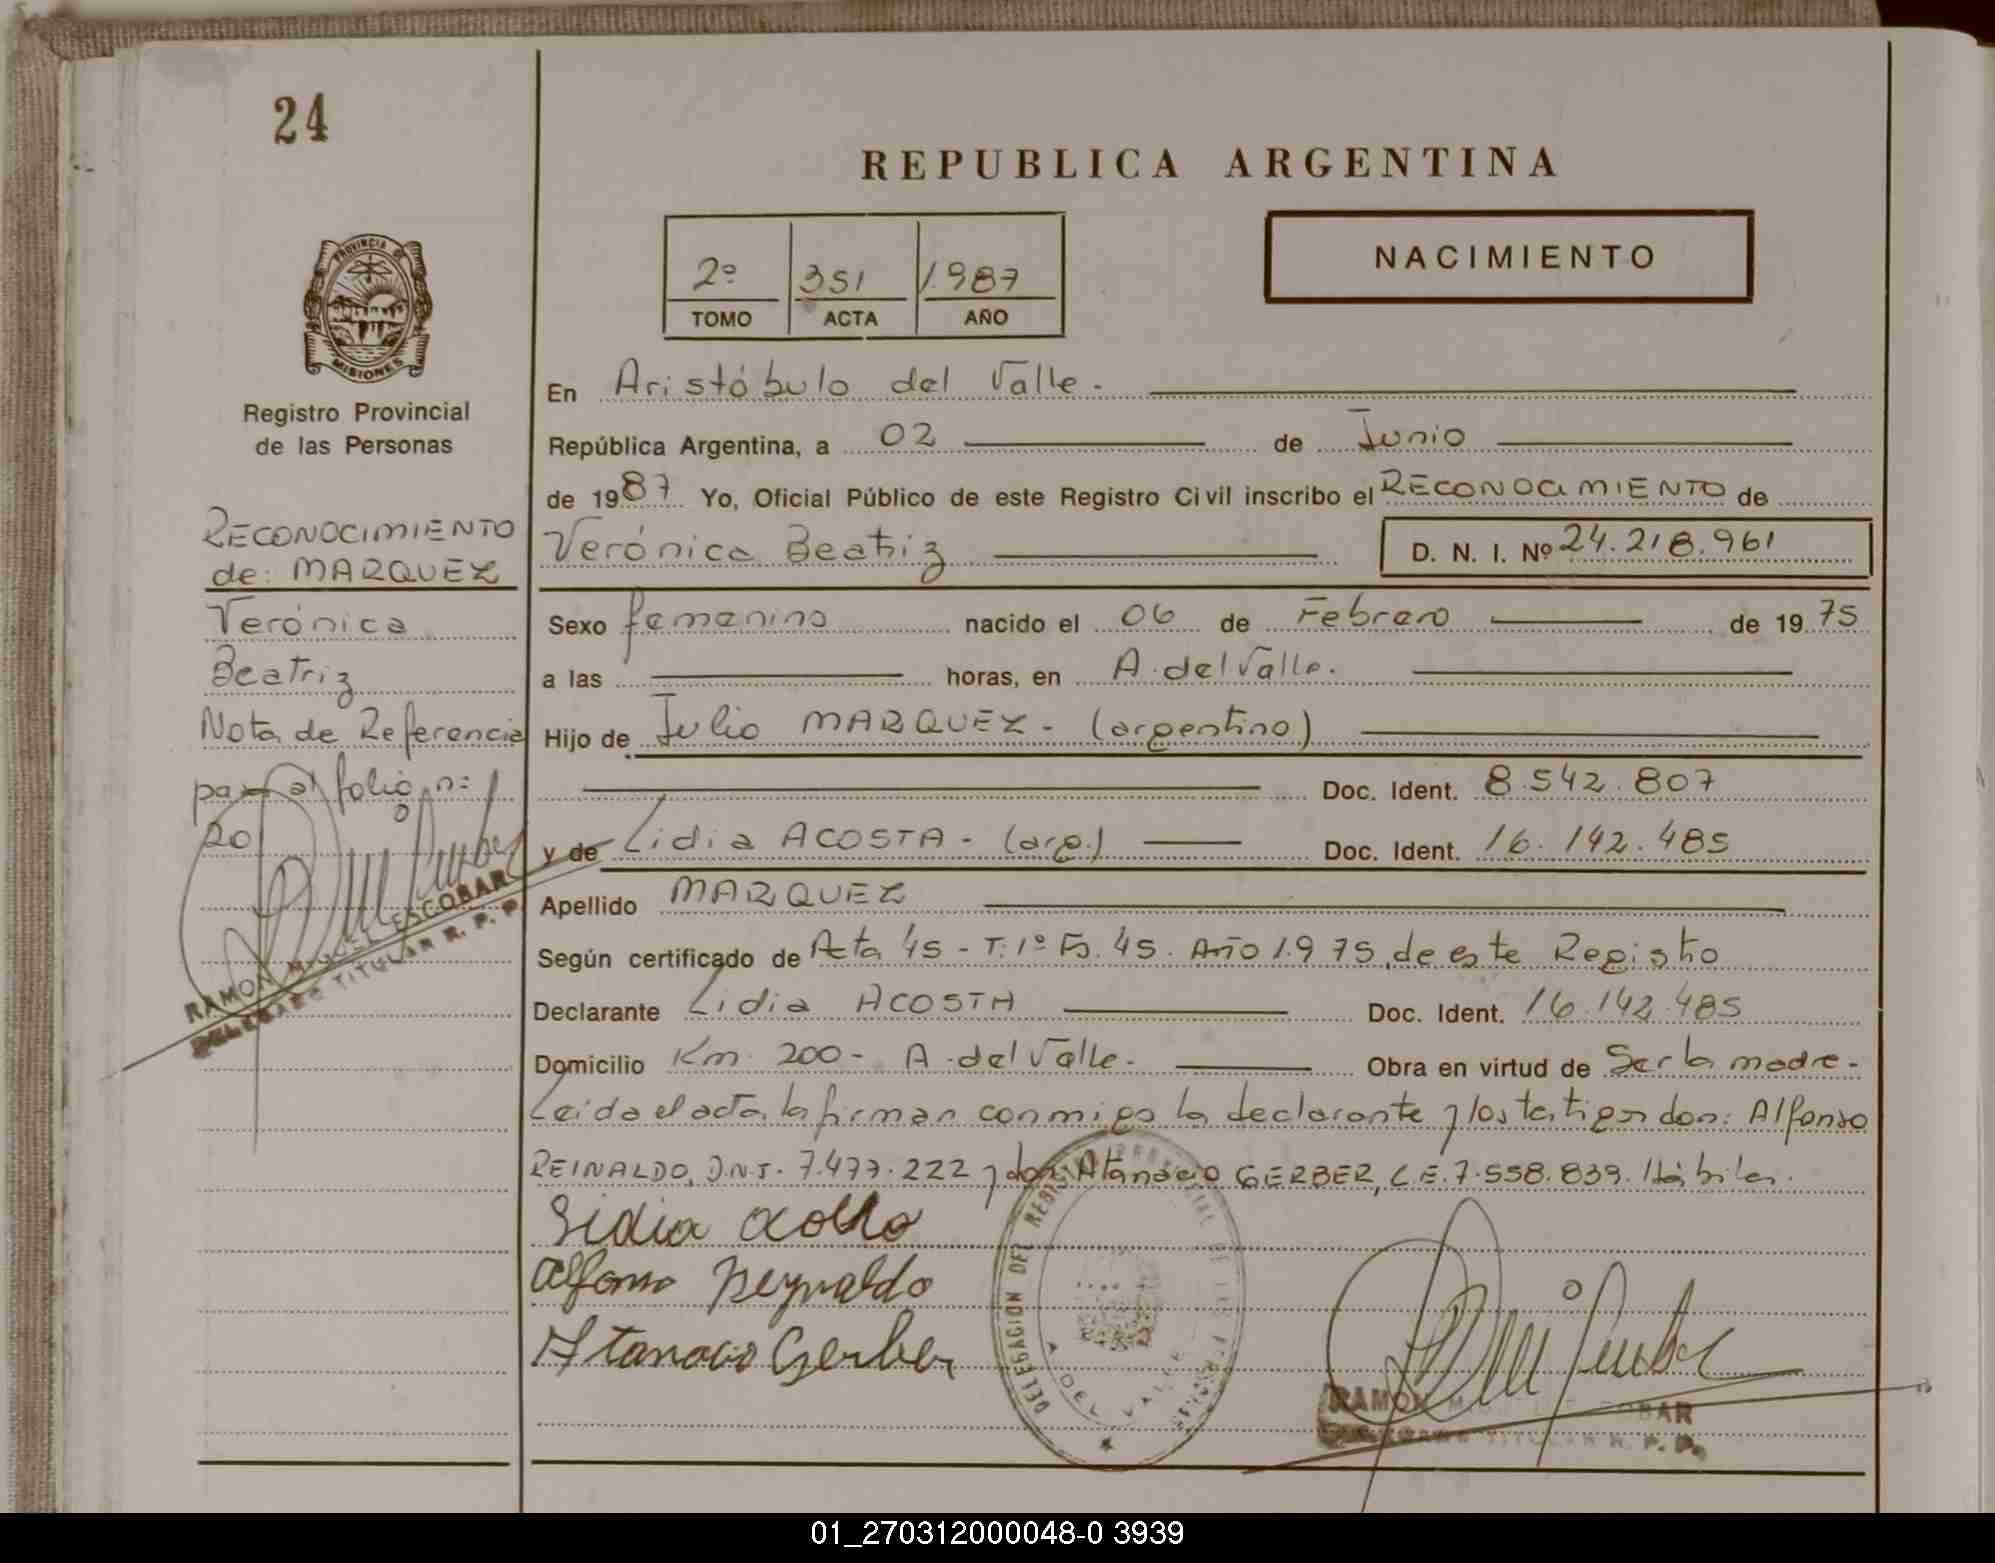 24
REPUBLICA ARGENTINA
PROVINCIA DE
MISIONES
Registro Provincial
de las Personas
2º 351 1.987
TOMO ACTA AÑO
NACIMIENTO
En Aristóbulo del Valle.
República Argentina, a 02 de Junio
de 1987 Yo, Oficial Público de este Registro Civil inscribo el RECONOCIMIENTO de
Verónica Beatriz D. N. I. Nº 24.218.961
Sexo femenino nacido el 06 de Febrero de 1975
a las horas, en A. del Valle.
Hijo de Julio MARQUEZ - (argentino)
Doc. Ident. 8.542.807
y de Lidia ACOSTA - (arg.) Doc. Ident. 16.142.485
Apellido MARQUEZ
Según certificado de Acta 45 - T: 1º Fº. 45. Año 1.975, de este Registro
Declarante Lidia ACOSTA Doc. Ident. 16.142.485
Domicilio Km. 200 - A. del Valle. Obra en virtud de Ser la madre.
Leída el acta, la firman conmigo la declarante y los testigos don: Alfonso
REINALDO, D.N.I. 7.477.222 y don Atanacio GERBER, L.E. 7.558.839. Hábiles.
Lidia Acosta
Alfonso Reynaldo
Atanacio Gerber
DELEGACION DEL REGISTRO PROVINCIAL DE LAS PERSONAS
A. DEL VALLE
RAMON MIGUEL ESCOBAR
DELEGADO TITULAR R. P. P.
RECONOCIMIENTO
de: MARQUEZ
Verónica
Beatriz
Nota de Referencia
pasa al folio n:
20
RAMON MIGUEL ESCOBAR
DELEGADO TITULAR R. P. P.
01_270312000048-0 3939